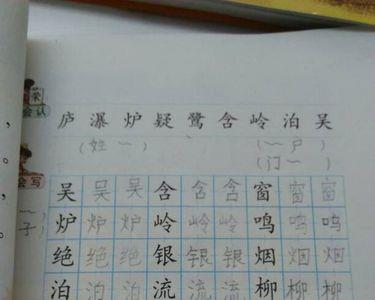 荣
会认
庐 瀑 炉 疑 鹭 含 岭 泊 吴
(姓~) (~户)
(门~)
会写
吴 吴 吴 含 含 含 窗 窗 窗
(~子) 炉 炉 炉 岭 岭 岭 鸣 鸣 鸣
绝 绝 绝 银 银 银 烟 烟 烟
泊 泊 泊 流 流 流 柳 柳 柳